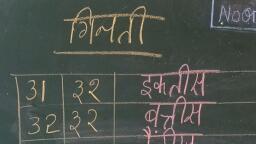 गिनती
Noor
31 ३१ इकतीस
32 ३२ बत्तीस